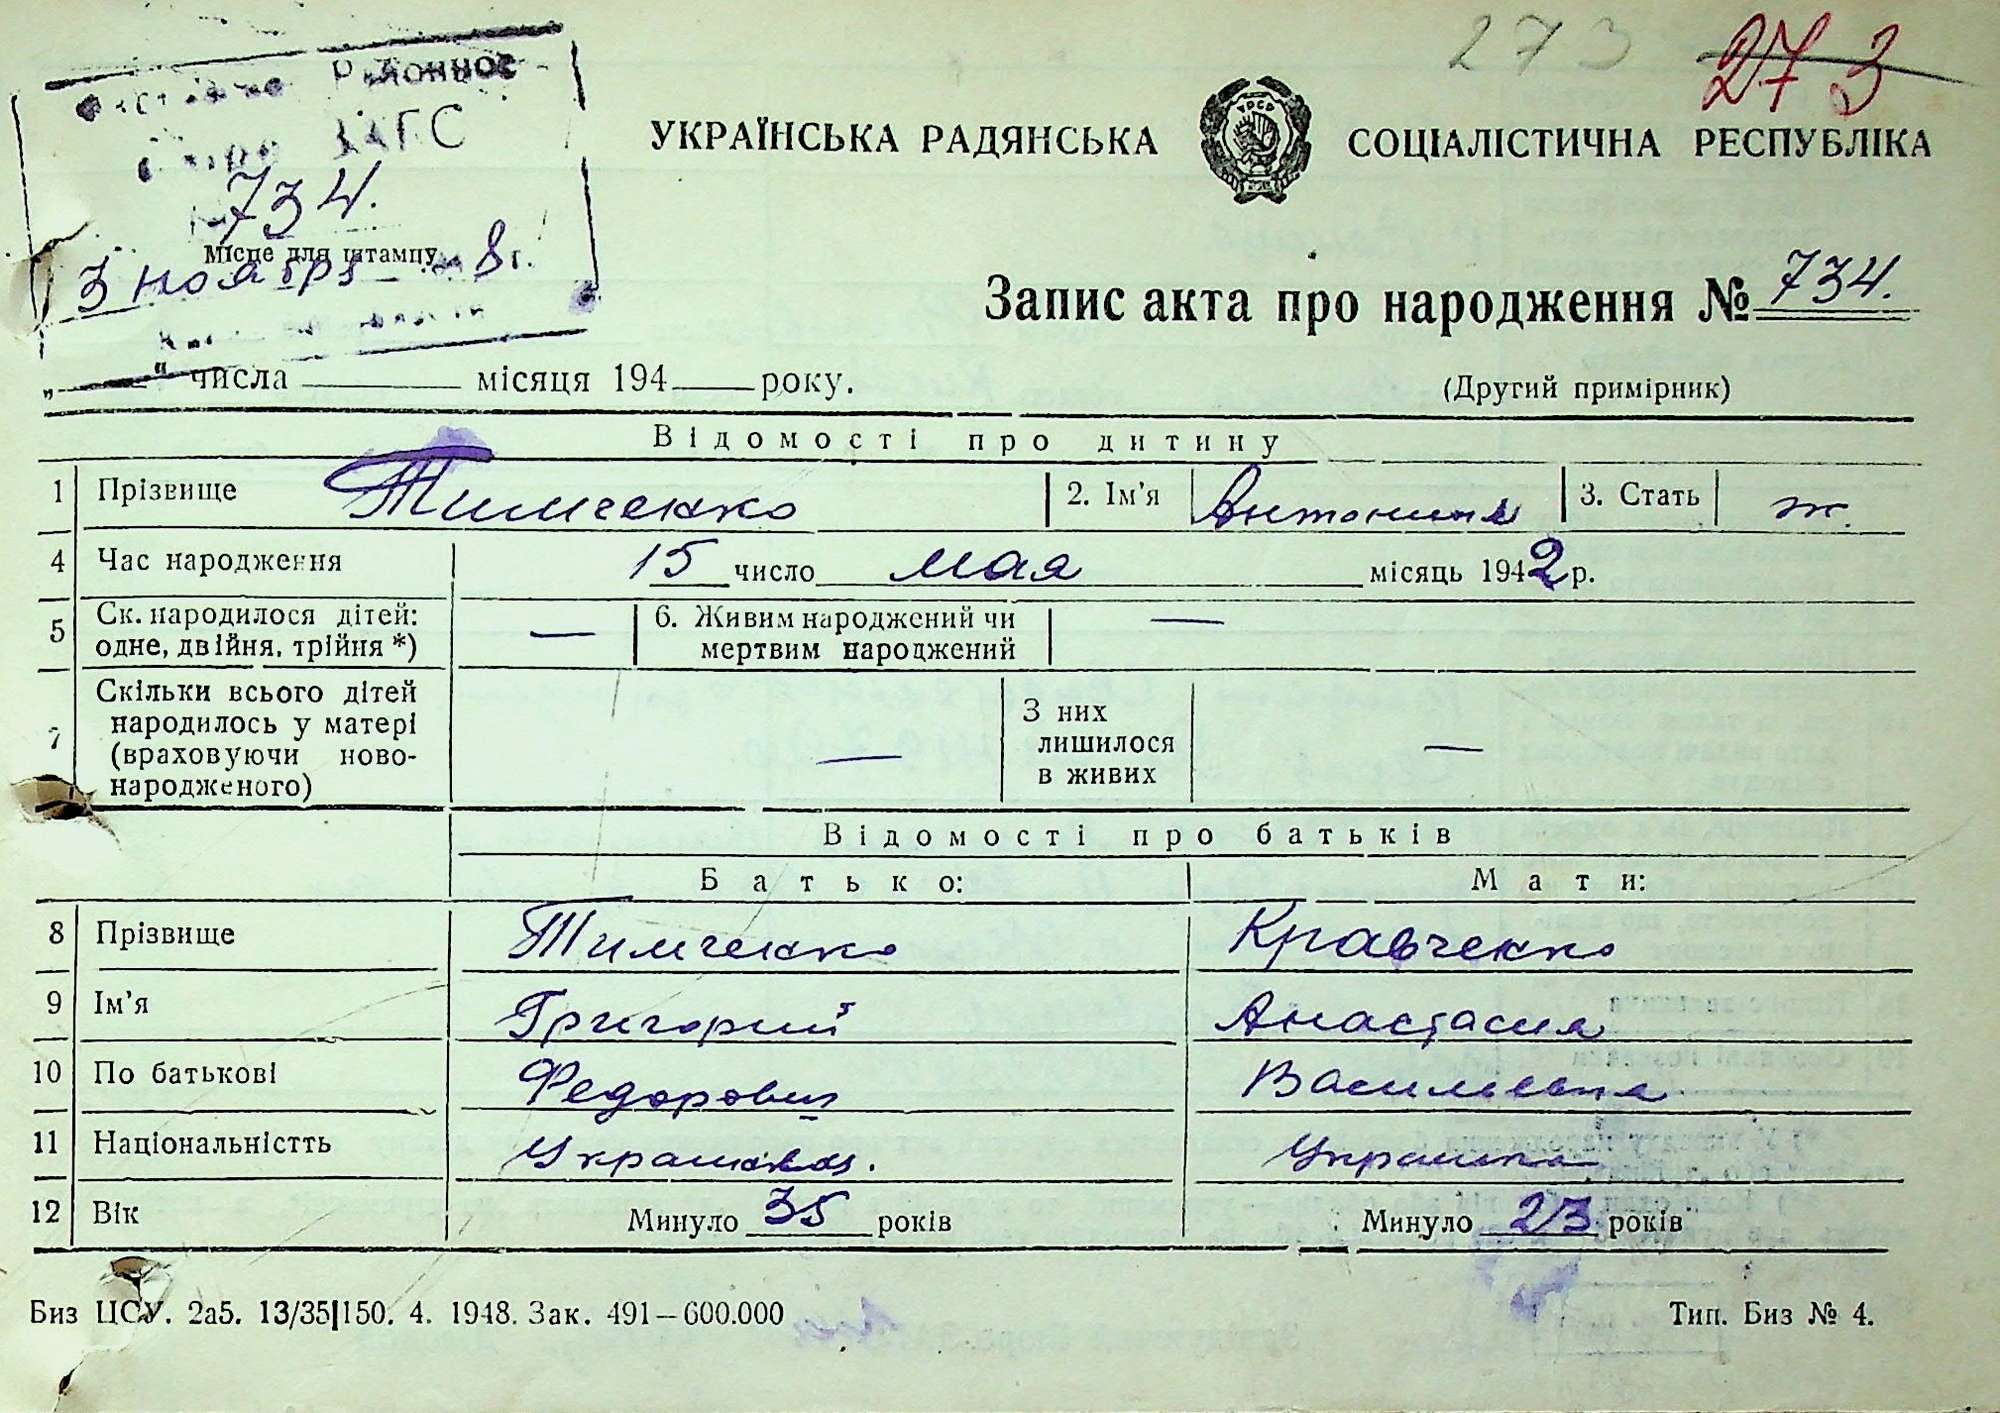 273 273
районное
ЗАГС
734.
Місце для штампу
3 ноября 8 г.
УКРАЇНСЬКА РАДЯНСЬКА СОЦІАЛІСТИЧНА РЕСПУБЛІКА
УРСР
Запис акта про народження № 734.
„ “ числа місяця 194 року.
(Другий примірник)
Відомості про дитину
1 Прізвище Тимченко 2. Ім'я Антонина 3. Стать ж.
4 Час народження 15 число мая місяць 1942 р.
5 Ск. народилося дітей: одне, двійня, трійня *) — 6. Живим народжений чи мертвим народжений —
7 Скільки всього дітей народилось у матері (враховуючи ново-народженого) — З них лишилося в живих —
Відомості про батьків
Батько: Мати:
8 Прізвище Тимченко Кравченко
9 Ім'я Григорий Анастасия
10 По батькові Федорович Васильевна
11 Національністть Украинец. Украинка
12 Вік Минуло 35 років Минуло 23 років
Биз ЦСУ. 2а5. 13/35|150. 4. 1948. Зак. 491—600.000 Тип. Биз № 4.